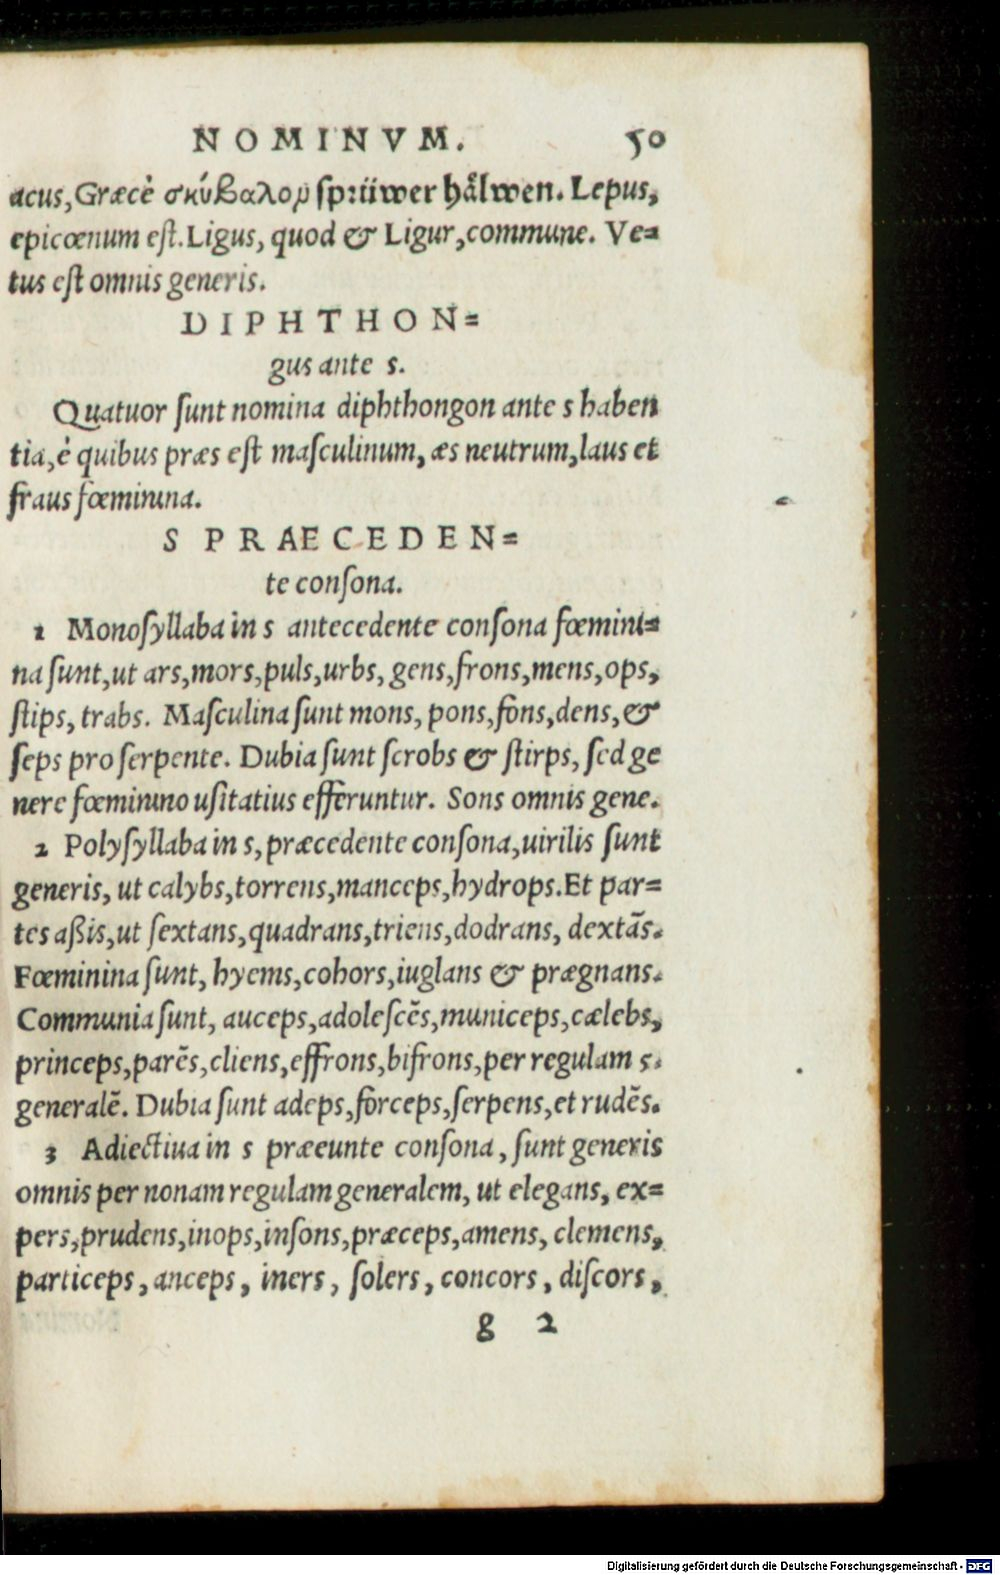 NOMINVM. 50
acus, Græcè σκύβαλον sprüwer hålwen. Lepus,
epicœnum eſt. Ligus, quod & Ligur, commune. Ve=
tus eſt omnis generis.
DIPHTHON=
gus ante s.
Quatuor ſunt nomina diphthongon ante s haben
tia, è quibus præs eſt maſculinum, æs neutrum, laus et
fraus fœminina.
S PRAECEDEN=
te conſona.
1 Monoſyllaba in s antecedente conſona fœmini=
na ſunt, ut ars, mors, puls, urbs, gens, frons, mens, ops,
ſtips, trabs. Maſculina ſunt mons, pons, fons, dens, &
ſeps pro ſerpente. Dubia ſunt ſcrobs & ſtirps, ſed ge
nere fœminino uſitatius efferuntur. Sons omnis gene.
2 Polyſyllaba in s, præcedente conſona, uirilis ſunt
generis, ut calybs, torrens, manceps, hydrops. Et par=
tes aßis, ut ſextans, quadrans, triens, dodrans, dextãs.
Fœminina ſunt, hyems, cohors, iuglans & prægnans.
Communia ſunt, auceps, adoleſcẽs, municeps, cælebs,
princeps, parẽs, cliens, effrons, bifrons, per regulam 5.
generalẽ. Dubia ſunt adeps, forceps, ſerpens, et rudẽs.
3 Adiectiua in s præeunte conſona, ſunt generis
omnis per nonam regulam generalem, ut elegans, ex=
pers, prudens, inops, inſons, præceps, amens, clemens,
particeps, anceps, iners, ſolers, concors, diſcors,
g 2
Digitalisierung gefördert durch die Deutsche Forschungsgemeinschaft - DFG